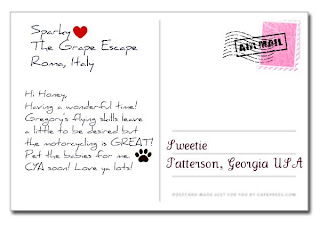 Sparky
The Grape Escape
Roma, Italy
Hi Honey,
Having a wonderful time!
Gregory's flying skills leave
a little to be desired but
the motorcycling is GREAT!
Pet the babies for me.
CYA soon! Love ya lots!
AIR MAIL
Sweetie
Patterson, Georgia USA
POSTCARD MADE JUST FOR YOU BY CAFEPRESS.COM